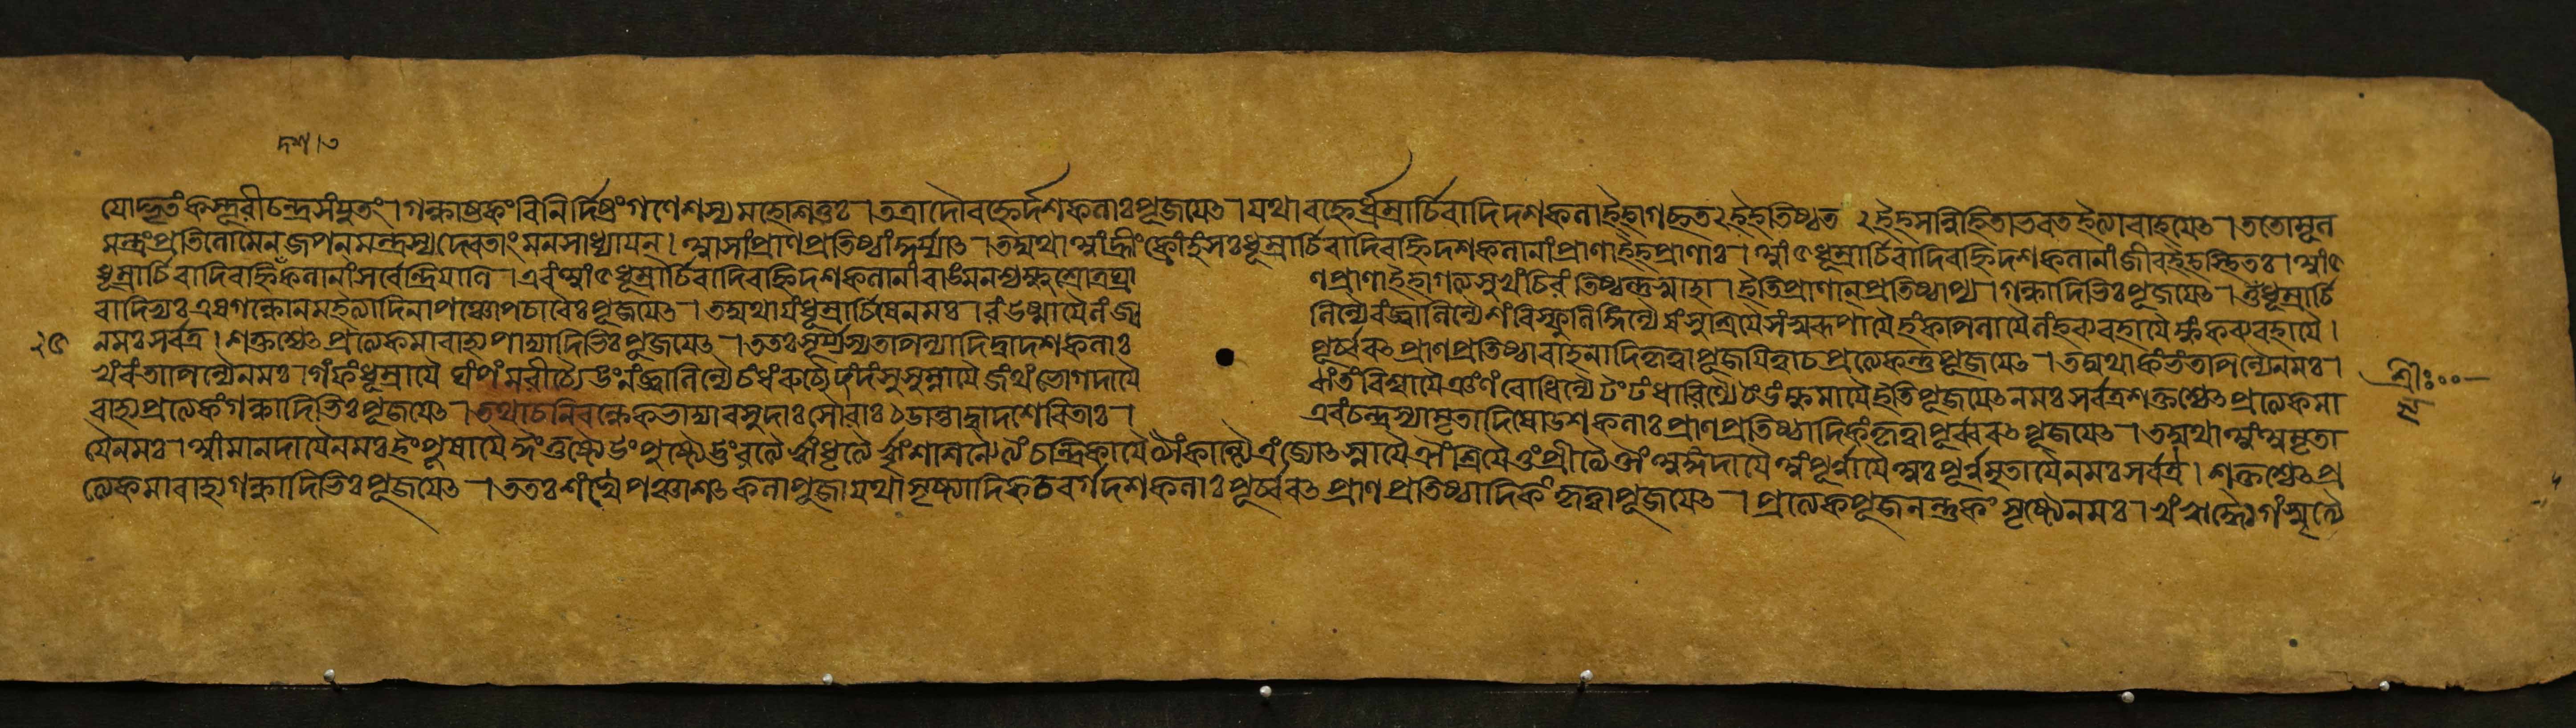 দশ।৩
যোদ্ধৃতং কস্তূরীচন্দ্রসংযুতং।গন্ধাষ্টকং বিনির্দিষ্টং গণেশস্য মহেশিতুঃ।তত্রাদৌ বহ্নের্দশকলাঃ পূজয়েৎ।যথা বহ্নের্ধূম্রার্চিরাদিদশকলা ইহাগচ্ছত ২ ইহতিষ্ঠত ২ ইহ সন্নিহিতা ভবত ইত্যাবাহয়েৎ।ততো মূল
মন্ত্রং প্রতিলোমেন জপন্ মন্ত্রস্য দেবতাং মনসা ধ্যায়ন্।আসাং প্রাণপ্রতিষ্ঠাং কুর্য্যাৎ।তদ্যথা আং হ্রীং ক্রোং হংসঃ ধূম্রার্চিরাদিবহ্নিদশকলানাং প্রাণা ইহ প্রাণাঃ।আং ৫ ধূম্রার্চিরাদিবহ্নিদশকলানাং জীব ইহ স্থিতঃ।আং ৫
ধূম্রার্চিরাদিবহ্নিকলানাং সর্বেন্দ্রিয়াণি।এবং আং ৫ ধূম্রার্চিরাদিবহ্নিদশকলানাং বাঙ্মনশ্চক্ষুশ্রোত্রঘ্রা ণপ্রাণা ইহাগত্য সুখং চিরং তিষ্ঠন্তু স্বাহা।ইতি প্রাণান্ প্রতিষ্ঠাপ্য।গন্ধাদিভিঃ পূজয়েৎ।ওঁ ধূম্রার্চি
রাদিভ্যঃ এষ গন্ধো নম ইত্যাদিনা পঞ্চোপচারৈঃ পূজয়েৎ।তদ্যথা যং ধূম্রার্চিষে নমঃ।রং উষ্মায়ৈ লং জ্ব লিন্যৈ বং জ্বালিন্যৈ শং বিস্ফুলিঙ্গিন্যৈ ষং সুশ্রিয়ৈ সং স্বরূপায়ৈ হং কপিলায়ৈ লং হব্যবহায়ৈ ক্ষং কব্যবহায়ৈ।
২৫ নমঃ সর্বত্র।শক্তশ্চেৎ প্রত্যেকমাবাহ্য পাদ্যাদিভিঃ পূজয়েৎ।ততঃ সূর্য্যস্য তাপিন্যাদিদ্বাদশকলাঃ পূর্ব্ববৎ প্রাণপ্রতিষ্ঠাবাহনাদিকৃত্বা পূজয়িত্বা চ প্রত্যেকন্তু পূজয়েৎ।তদ্যথা কং ভং তাপিন্যৈ নমঃ।
খং বং তাপিন্যৈ নমঃ।গং ফং ধূম্রায়ৈ ঘং পং মরীচ্যৈ ঙং নং জ্বালিন্যৈ চং ধং রুচ্যৈ ছং দং সুসুম্নায়ৈ জং থং ভোগদায়ৈ ঝং তং বিশ্বায়ৈ ঞং ণং বোধিন্যৈ টং ঢং ধারিণ্যৈ ঠং ডং ক্ষমায়ৈ ইতি পূজয়েৎ নমঃ সর্বত্র শক্তশ্চেৎ প্রত্যেকমা শ্রীঃ
বাহ্য প্রত্যেকং গন্ধাদিভিঃ পূজয়েৎ।তথাচ নিবন্ধে কভাদ্যা বসুদাঃ সৌরাঃ ঠডান্তা দ্বাদশেরিতাঃ। এবং চন্দ্রস্যামৃতাদিষোডশকলাঃ প্রাণপ্রতিষ্ঠাদিকং কৃত্বা পূর্ব্ববৎ পূজয়েৎ।তদ্যথা অং অমৃতা
য়ৈ নমঃ।আং মানদায়ৈ নমঃ ইং পূষায়ৈ ঈং তুষ্ট্যৈ উং পুষ্ট্যৈ ঊং রত্যৈ ঋং ধৃত্যৈ ৠং শশিন্যৈ ঌং চন্দ্রিকায়ৈ ৡং কান্ত্যৈ এং জ্যোৎস্নায়ৈ ঐং শ্রিয়ৈ ওং প্রীত্যৈ ঔং অঙ্গদায়ৈ অং পূর্ণায়ৈ অঃ পূর্ণামৃতায়ৈ নমঃ সর্বত্র।শক্তশ্চেৎ প্র
ত্যেকমাবাহ্য গন্ধাদিভিঃ পূজয়েৎ।ততঃ শংখে পঞ্চাশৎকলাপূজা যথা সৃষ্ট্যাদিকচবর্গদশকলাঃ পূর্ব্ববৎ প্রাণপ্রতিষ্ঠাদিকং কৃত্বা পূজয়েৎ।প্রত্যেকপূজনন্তু কং সৃষ্ট্যৈ নমঃ।খং ঋদ্ধ্যৈ গং স্মৃত্যৈ